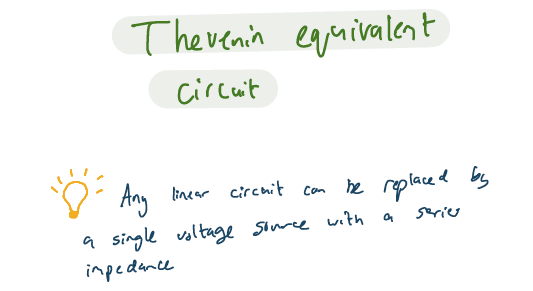 Thevenin equivalent
circuit
Any linear circuit can be replaced by
a single voltage source with a series
impedance